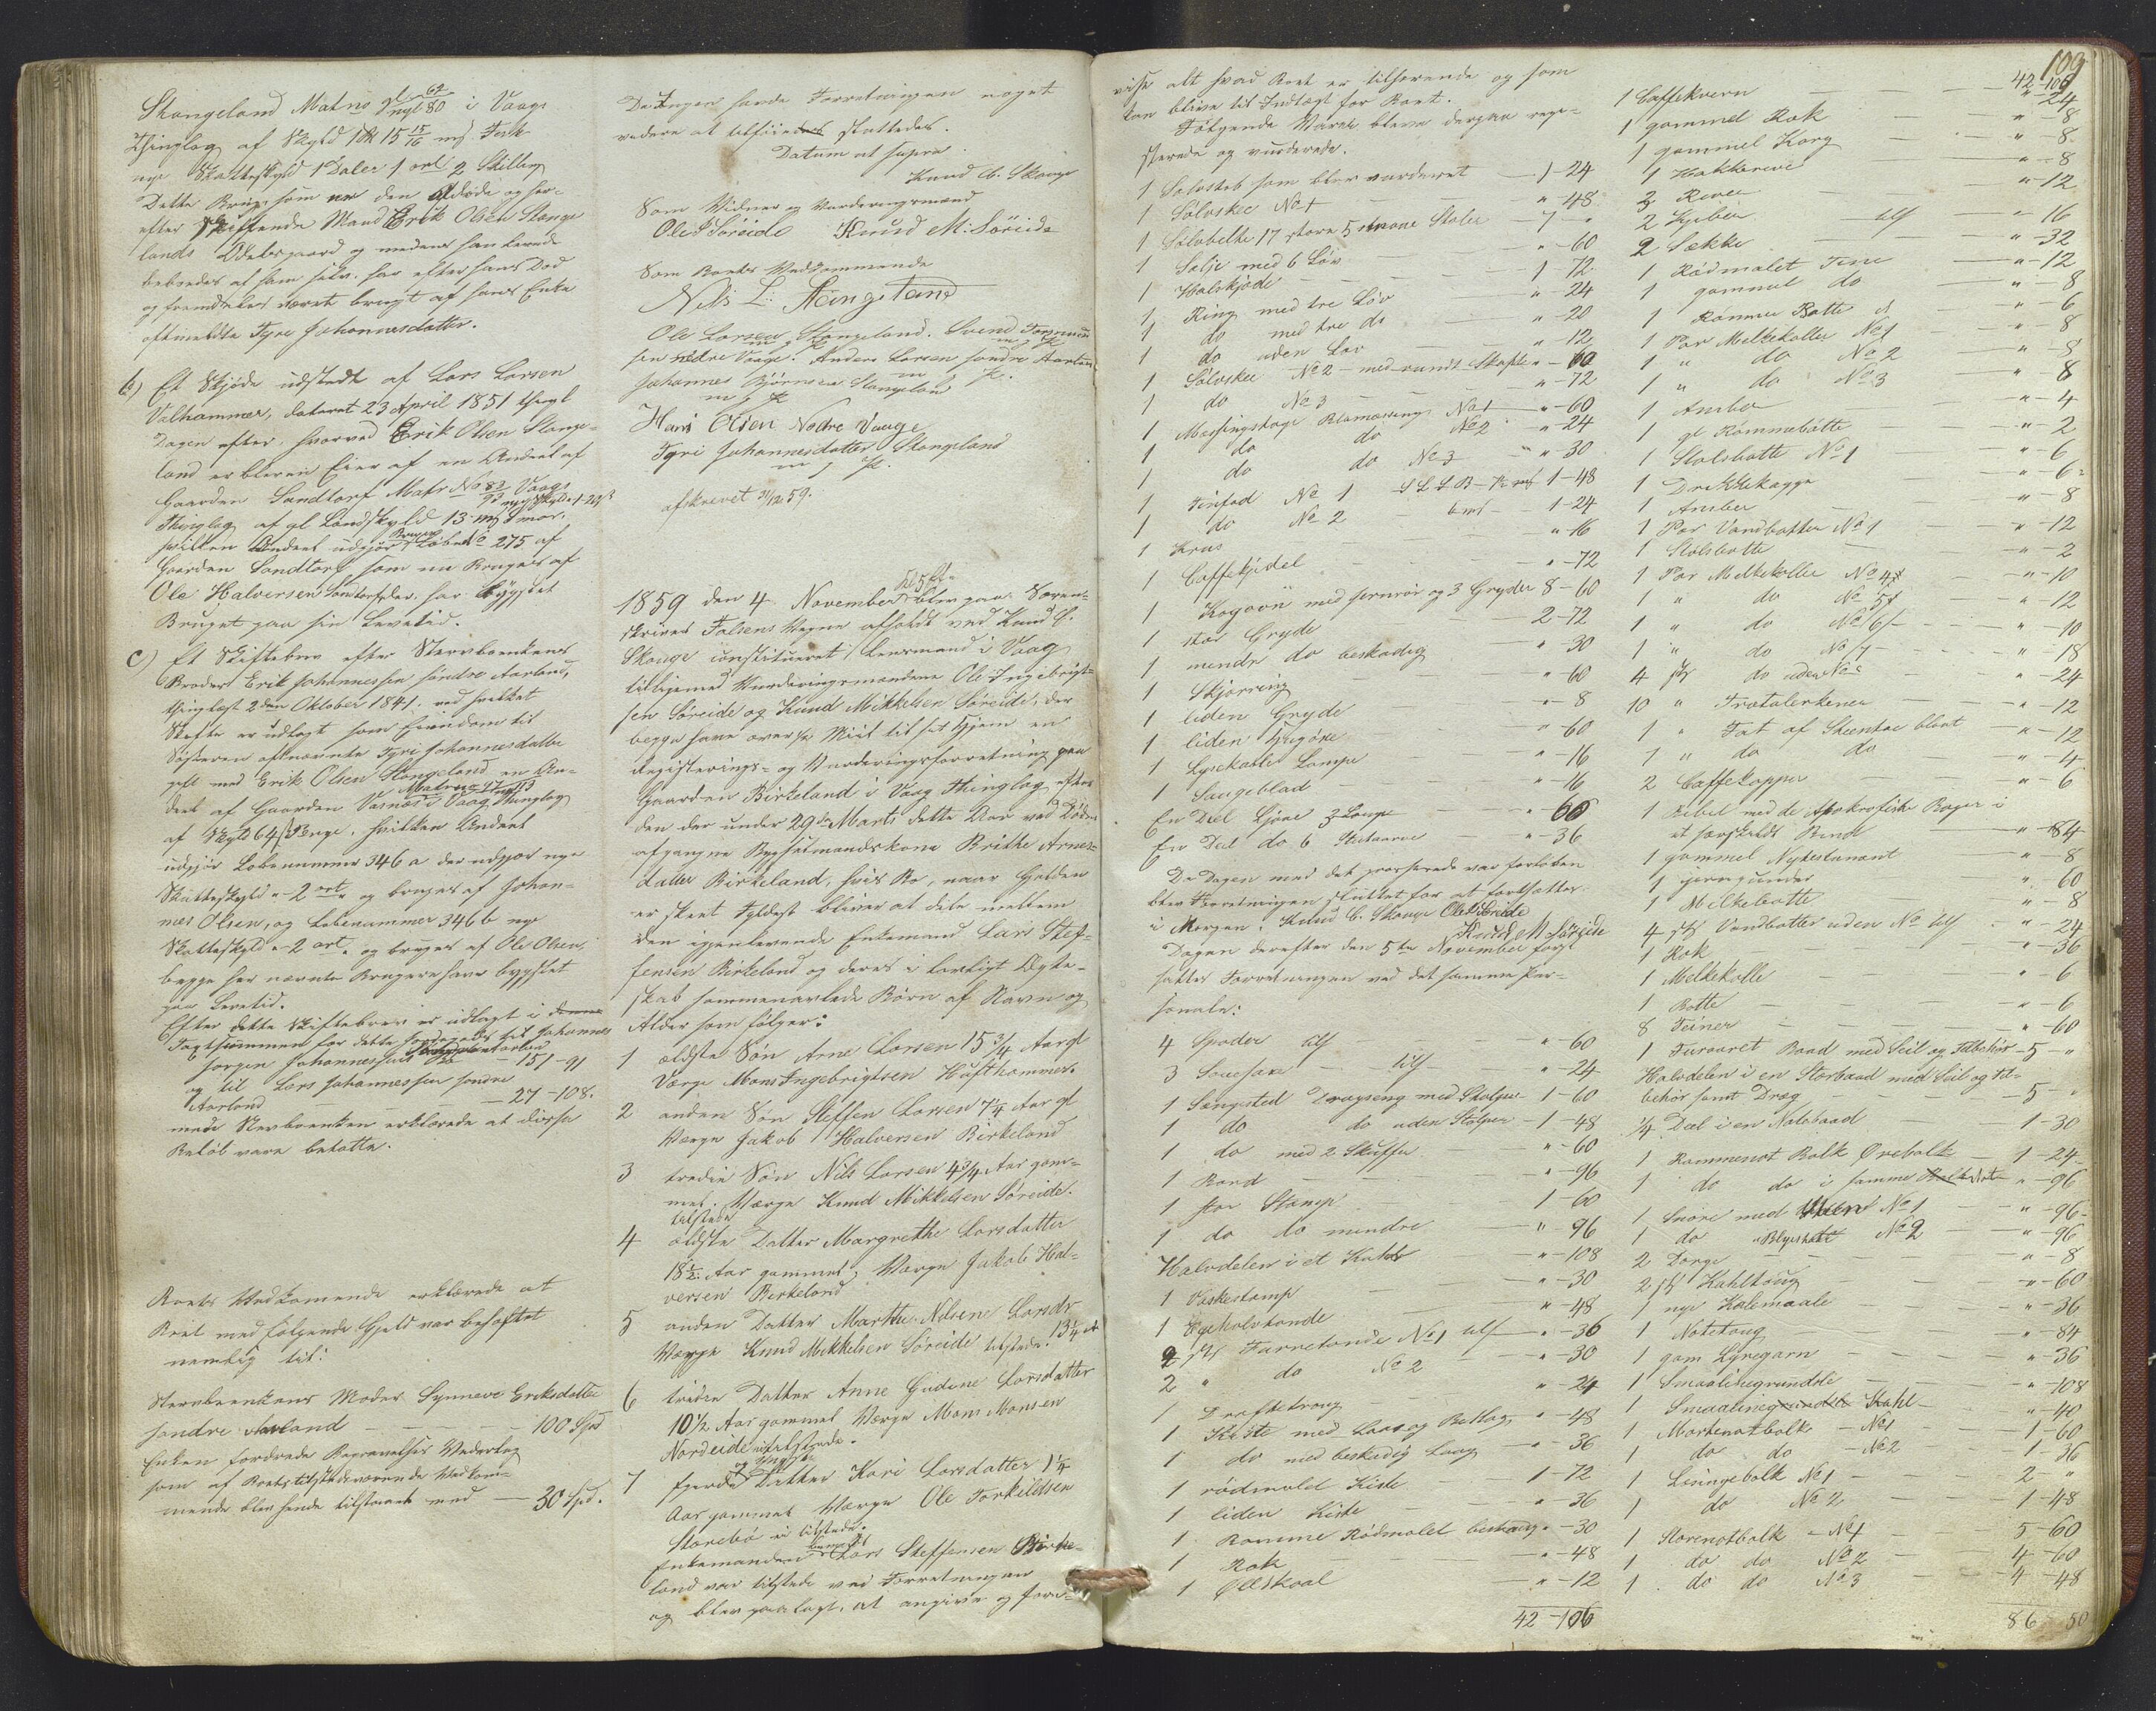 Stangeland Matno gl 62 nyl 80 i Vaags
Thinglag af Skyld 1 15 15/16 mk Fisk
nye Skatteskyld 1 Daler 1 ort 2 Skilling
Dette Brug som var den afdøde og her-
efter skiftende Mand Erik Olsen Stange
lands Odelsgaard og medens han levede
beboedes af ham selv. har efter hans Død
og fremdeles været brugt af hans Enke
oftmeldte Tyri Johannesdatter.
b) Et Skjøde udstedt af Lars Larsen
Valhammer, dateret 23 April 1851 thingl
Dagen efter, hvorved Erik Olsen Stange-
land er bleven Eier af en Andeel af
Gaarden Sandtorf Matr No 83 93 Vaags
Thinglag af gl Landskyld 13 mk Smør.
hvilken Andeel udgjør Løbeno 275 af
Gaarden Sandtorf som nu bruges af
Ole Halversen Sandtorf der har bygslet
Bruget paa sin Levetid.
c) Et Skiftebrev efter Stervboenkens
Broder Erik Johannessen søndre Aarland,
thinglæst 2den Oktober 1841. ved hvilket
Skifte er udlagt som Eiendom til
Søsteren oftnævnte Tyri Johannesdatter
gift med Erik Olsen Stangeland en An-
deel af Gaarden Vasnæs i Vaag Thinglag
af Skyld 64 hvilken Andeel
udgjør Løbenummer 346 a der udgjør nye
Skatteskyld " - 2 ort - " og bruges af Johan-
nes Olsen, og Løbenummer 346 b nye
Skatteskyld " - 2 ort " og bruges af Ole Olsen,
begge her nævnte Brugere have bygslet
paa Levetid.
Efter dette Skiftebrev er udlagt i
for dette til Johannes
Jørgen Johannessens 151-91
og til Lars Johannessen søndre
Aarland — 27-108.
mede Stervboenken erklærede at disse
Beløb vare betalte.
Boets Vedkomende erklærede at
Boet med følgende Gjeld var behæftet
nemlig til:
Stervboenkens Moder Synneve Eriksdatter
søndre Aarland — 100 Spd
Enken fordrede Begravelses Vederlag
som af Boets tilstedeværende Vedkom-
mende blev hende tilstaaet med — 30 Spd.
Da Ingen havde Forretningen noget
videre at tilføie sluttedes.
Datum ut supra.
Knud C. Skouge
Som Vidner og Vurderingsmænd
Ole I Søreide Knud M: Søreide
Som Boets Vedkommende
Nils L: Stangeland
Ole Larsen Stangeland. Svend
sen nedre Vaage. Anders Larsen søndre Aarland
Johannes Bjørnsen Stangeland
m f P.
Hans Olsen Nedre Vaage
Tyri Johannesdatter Stangeland
m f P.
afskrevet 31/12 59.
1859 den 4 November blev paa Soren-
skriver Falsens Vegne afholdt ved Knud C.
Skouge constitueret Lensmand i Vaag
tilligemed Vurderingsmændene Ole Ingebrigt-
sen Søreide og Knud Mikkelsen Søreide, der
begge have over ½ Miil til sit Hjem en
Registerings- og Vurderingsforretning paa
Gaarden Birkeland i Vaag Thinglag efter
den der under 29de Marts dette Aar ved Døden
afgangne Bygselmandskone Brithe Arnes-
datter Birkeland, hvis Bo, naar Gjelden
er skeet Fyldest bliver at dele mellem
den igjenlevende Enkemand Lars Stef-
fensen Birkeland og deres i lovligt Ægte-
skab sammenavlede Børn af Navn og
Alder som følger:
1 ældste Søn Arne Larsen 15 3/4 Aar gl
Værge Mons Ingebrigtsen Hufthammer.
2 anden Søn Steffen Larsen 7 1/4 Aar gl
Værge Jakob Halversen Birkeland
3 tredie Søn Nils Larsen 4 3/4 Aar gam-
mel. Værge Knud Mikkelsen Søreide.
tilstede
4 ældste Datter Margrethe Larsdatter
18 1/2 Aar gammel, Værge Jakob Hal-
versen Birkeland
5 anden Datter Marthe Nilsine Larsdr
Værge Knud Mikkelsen Søreide tilstede. 13 1/4 A
6 tredie Datter Anne Gurine Larsdatter
10 1/2 Aar gammel Værge Mons Monsen
Nordeide utilstede.
7 fjerde og yngste Datter Kari Larsdatter 1 1/4
Aar gammel Værge Ole Torkildsen
Storebø ei tilstede.
Enkemanden Lars Steffensen Birke-
land var tilstede ved Forretningen
og blev paalagt, at angive og frem-
vise alt hvad Boet er tilhørende og som
kan blive til Indtægt for Boet.
Følgende Varer bleve derpaa regi-
sterede og vurderede.
1 Sølvstob som blev vurderet — 1-24
1 Sølvskee No 1 — " 48
1 Sølvbelte 17 store 5 smaae Støler — 7 - "
1 Sølje med 6 Løv — " -60
1 Halskjæde — 1-72
1 Ring med tre Løv — " -24
1 do med tre do — " -20
1 do uden Løv — " 12
1 Sølvskee No 2 med rundt Skaft " -60
1 do No 3 — " -72
1 Messingstage No 1 " -60
1 do do No 2 " 24
1 do do No 3 " 30
1 Tinfad No 1 S L S B 1-48
1 do No 2 — 1-24
1 Krus — " 16
1 Caffekjedel — " -72
1 Kogeovn med jernrør og 3 Gryder 8-60
1 stor Gryde — 2-72
1 mindre do beskadig — " 30
1 Skjørring — " 60
1 liden Gryde — " 8
1 liden — " 60
1 Lysekaarte Lampe — " -16
1 Saugeblad — " 16
En Deel Ljaae 3 Lange — " 60
En Deel do 6 — " -36
Da Dagen med det passerede var forløben
blev Forretningen sluttet for at fortsættes
i Morgen. Knud C. Skouge Ole I Søreide
Knud M Søreide
Dagen derefter den 5te November fort
sattes Forretningen ved det samme Per-
sonale:
4 Spader tils — " -60
3 Sauesaxe — tils " -24
1 Sængested Dragseng med Stolper 1-60
1 do do uden Stolper 1-48
1 do med 2 Skuffer — " 60
1 Bord — " -96
1 stor Stamp — 1-60
1 do do mindre — " 96
Halvdelen i et — " -108
1 Vaskestamp — " -30
1 Egeholvtønde — " 48
2 stk Farvetønde No 1 tils " -36
2 " do No 2 — " -30
1 Drøftetroug — " 24
1 Kiste med Laas og Beslag, " -48
1 do med beskadig Laag — " 36
1 rødmalet Kiste — 1-72
1 liden Kiste — " -36
1 Romme Rødmalet beskadig " 30
1 Rok — " -48
1 Ølskaal — " -12
42-106
109
42-106
1 Caffekvern — " 24
1 gammel Rok — " -8
1 gammel Korg — " 8
1 Hakkerive — " -8
3 River — " 12
2 Kjiber tils — " 16
2 Sække — " -32
1 Rødmalet Tine — " -12
1 gammel do — " 8
1 Rømme Botte — " -6
1 Par Melkekoller No 1 — " 8
1 " do No 2 — " 8
1 " do No 3 — " 8
1 Ambar — " 4
1 gl Rømmebøtte — " 2
1 Stolsbotte No 1 — " 6
1 Drikkekagge — " 6
1 Ambar — " 8
1 Par Vandbøtter No 1 — " -12
1 Stolsbøtte — " 2
1 Par Melkekoller No 4 — " -10
1 " do No 5 — " 12
1 " do No 6 — " 10
1 " do No 7 — " -18
4 stk do uden No — " -24
10 " Trætalerkener — " 12
1 " Fat af Steentøi blaat " 12
1 " do do " -4
2 Caffekopper — " 6
1 Bibel med de Apokrofiske Bøger i
et særskildt Bind — " 84
1 gammel Nytestament — " 8
1 — " 60
1 Melkebøtte — " 8
4 stk Vandbøtter uden No tils — " 24
1 Rok — " 36
1 Melkekolle — " 6
1 Botte — " 6
8 Teiner — " -60
1 Furaaret Baad med Seil og Tilbehør 5 - "
Halvdelen i en Storbaad med Seil og til-
behør samt Dræg — 5 - "
1/4 Deel i en Notebaad — 1-30
1 Rommenot Bolk Ørebolk — 1-24
1 do do i samme — " 96
1 Snøre med No 1 — " 96
1 do No 2 — " -96
2 Dorge — " 8
2 stk Kabeltoug — " 60
1 nye — " 36
1 Nottetoug — " 84
1 gam Lyregarn — " -36
1 — " 108
1 — " 40
1 Mortenotbolk No 1 1-60
1 do do No 2 — 1-36
1 Lisingebolk No 1 — 2 - "
1 do No 2 — 1-48
1 Storenotbolk No 1 — 5-60
1 do do No 2 — 4-60
1 do do No 3 — 4-48
86 50